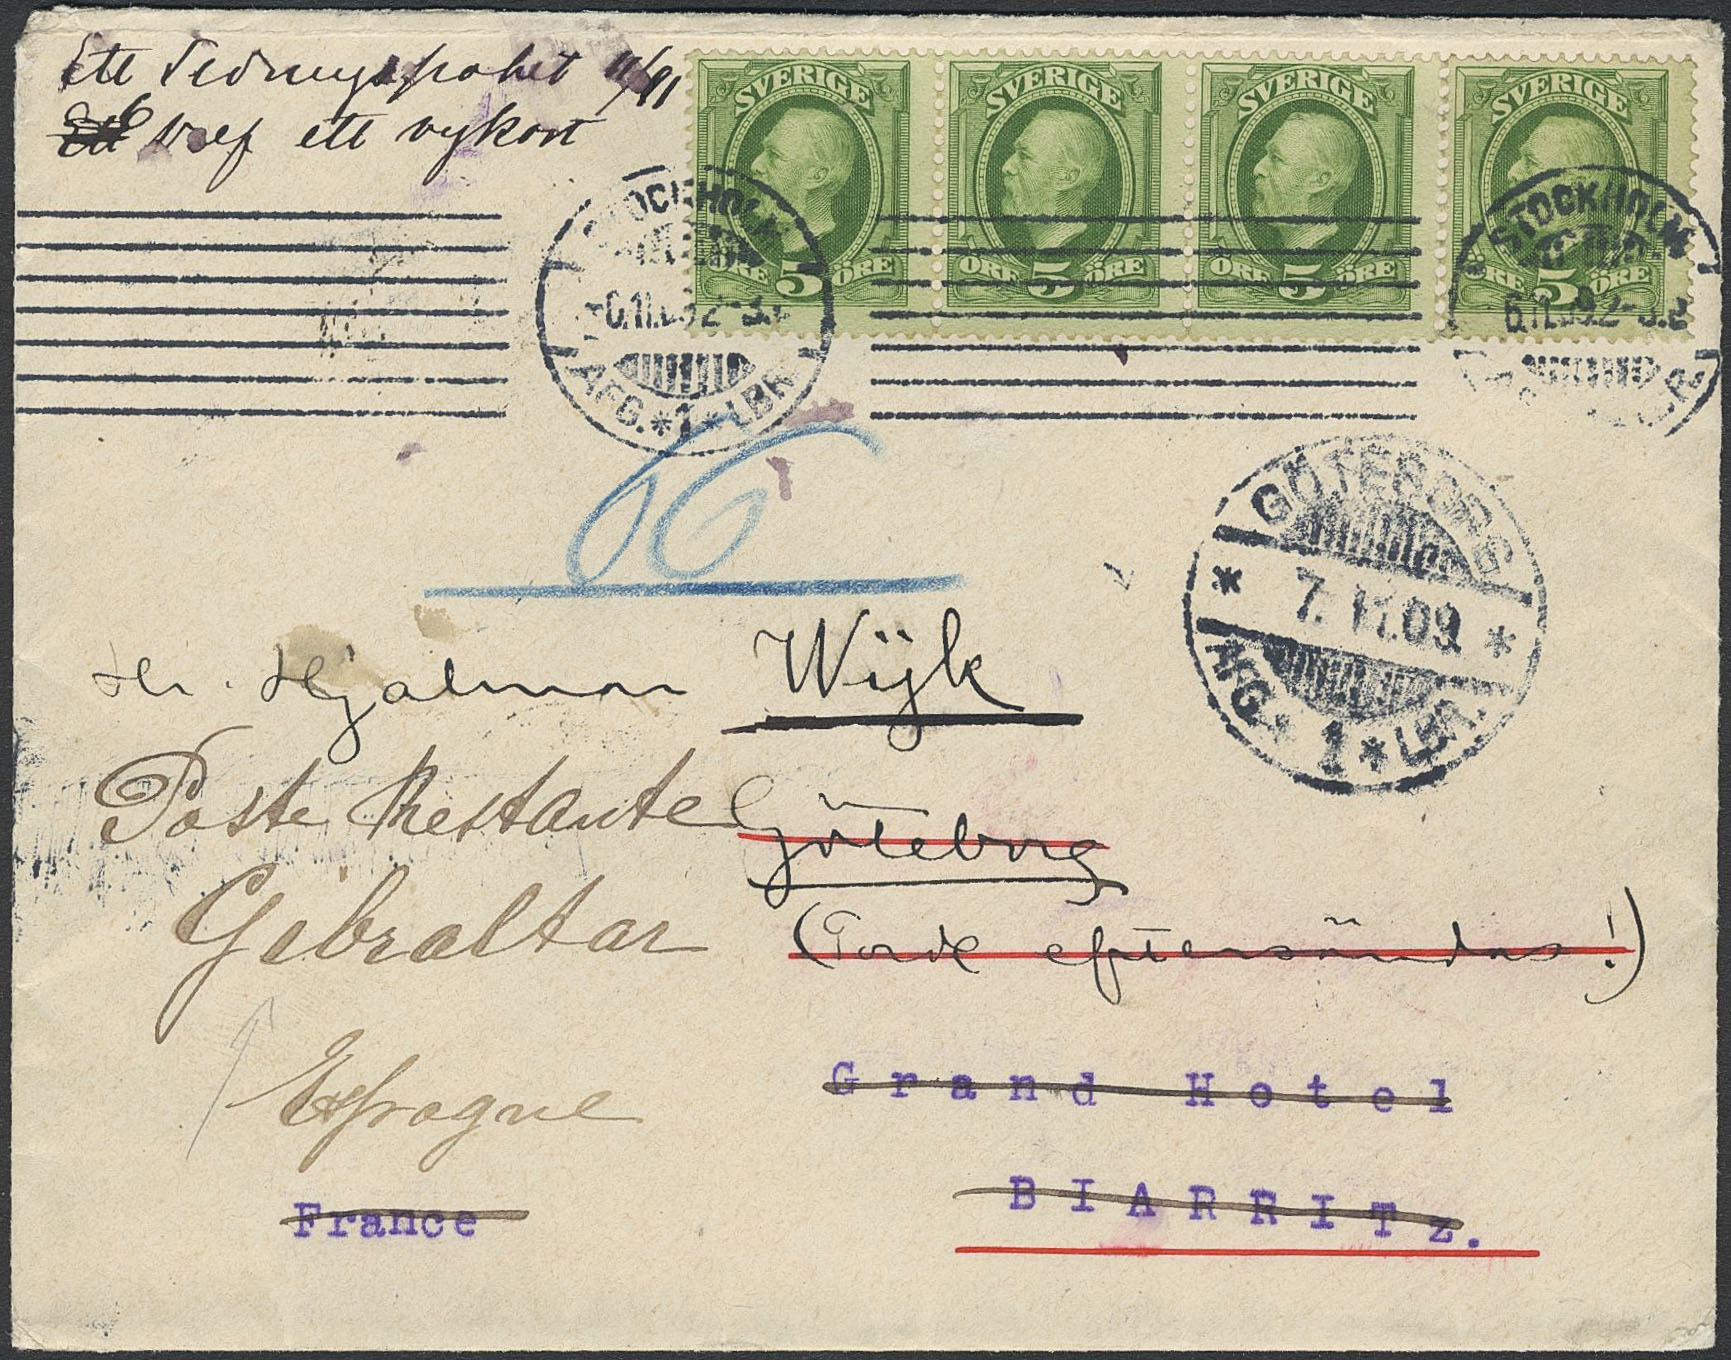 Ett Tidningspaket 11/11
Ett bref ett vykort
SVERIGE SVERIGE SVERIGE SVERIGE
ÖRE 5 ÖRE ÖRE 5 ÖRE ÖRE 5 ÖRE ÖRE 5 ÖRE
STOCKHOLM STOCKHOLM
6.11.09.2-3. 6.11.09.2-3.
AFG.*1*LBR.
66
GÖTEBORG
* 7.11.09 *
AFG.*1*LBR.
Hr. Hjalmar Wijk
Poste Restante Göteborg
Gibraltar (Torde eftersändas!)
Espagne
Grand Hotel
BIARRITz.
France